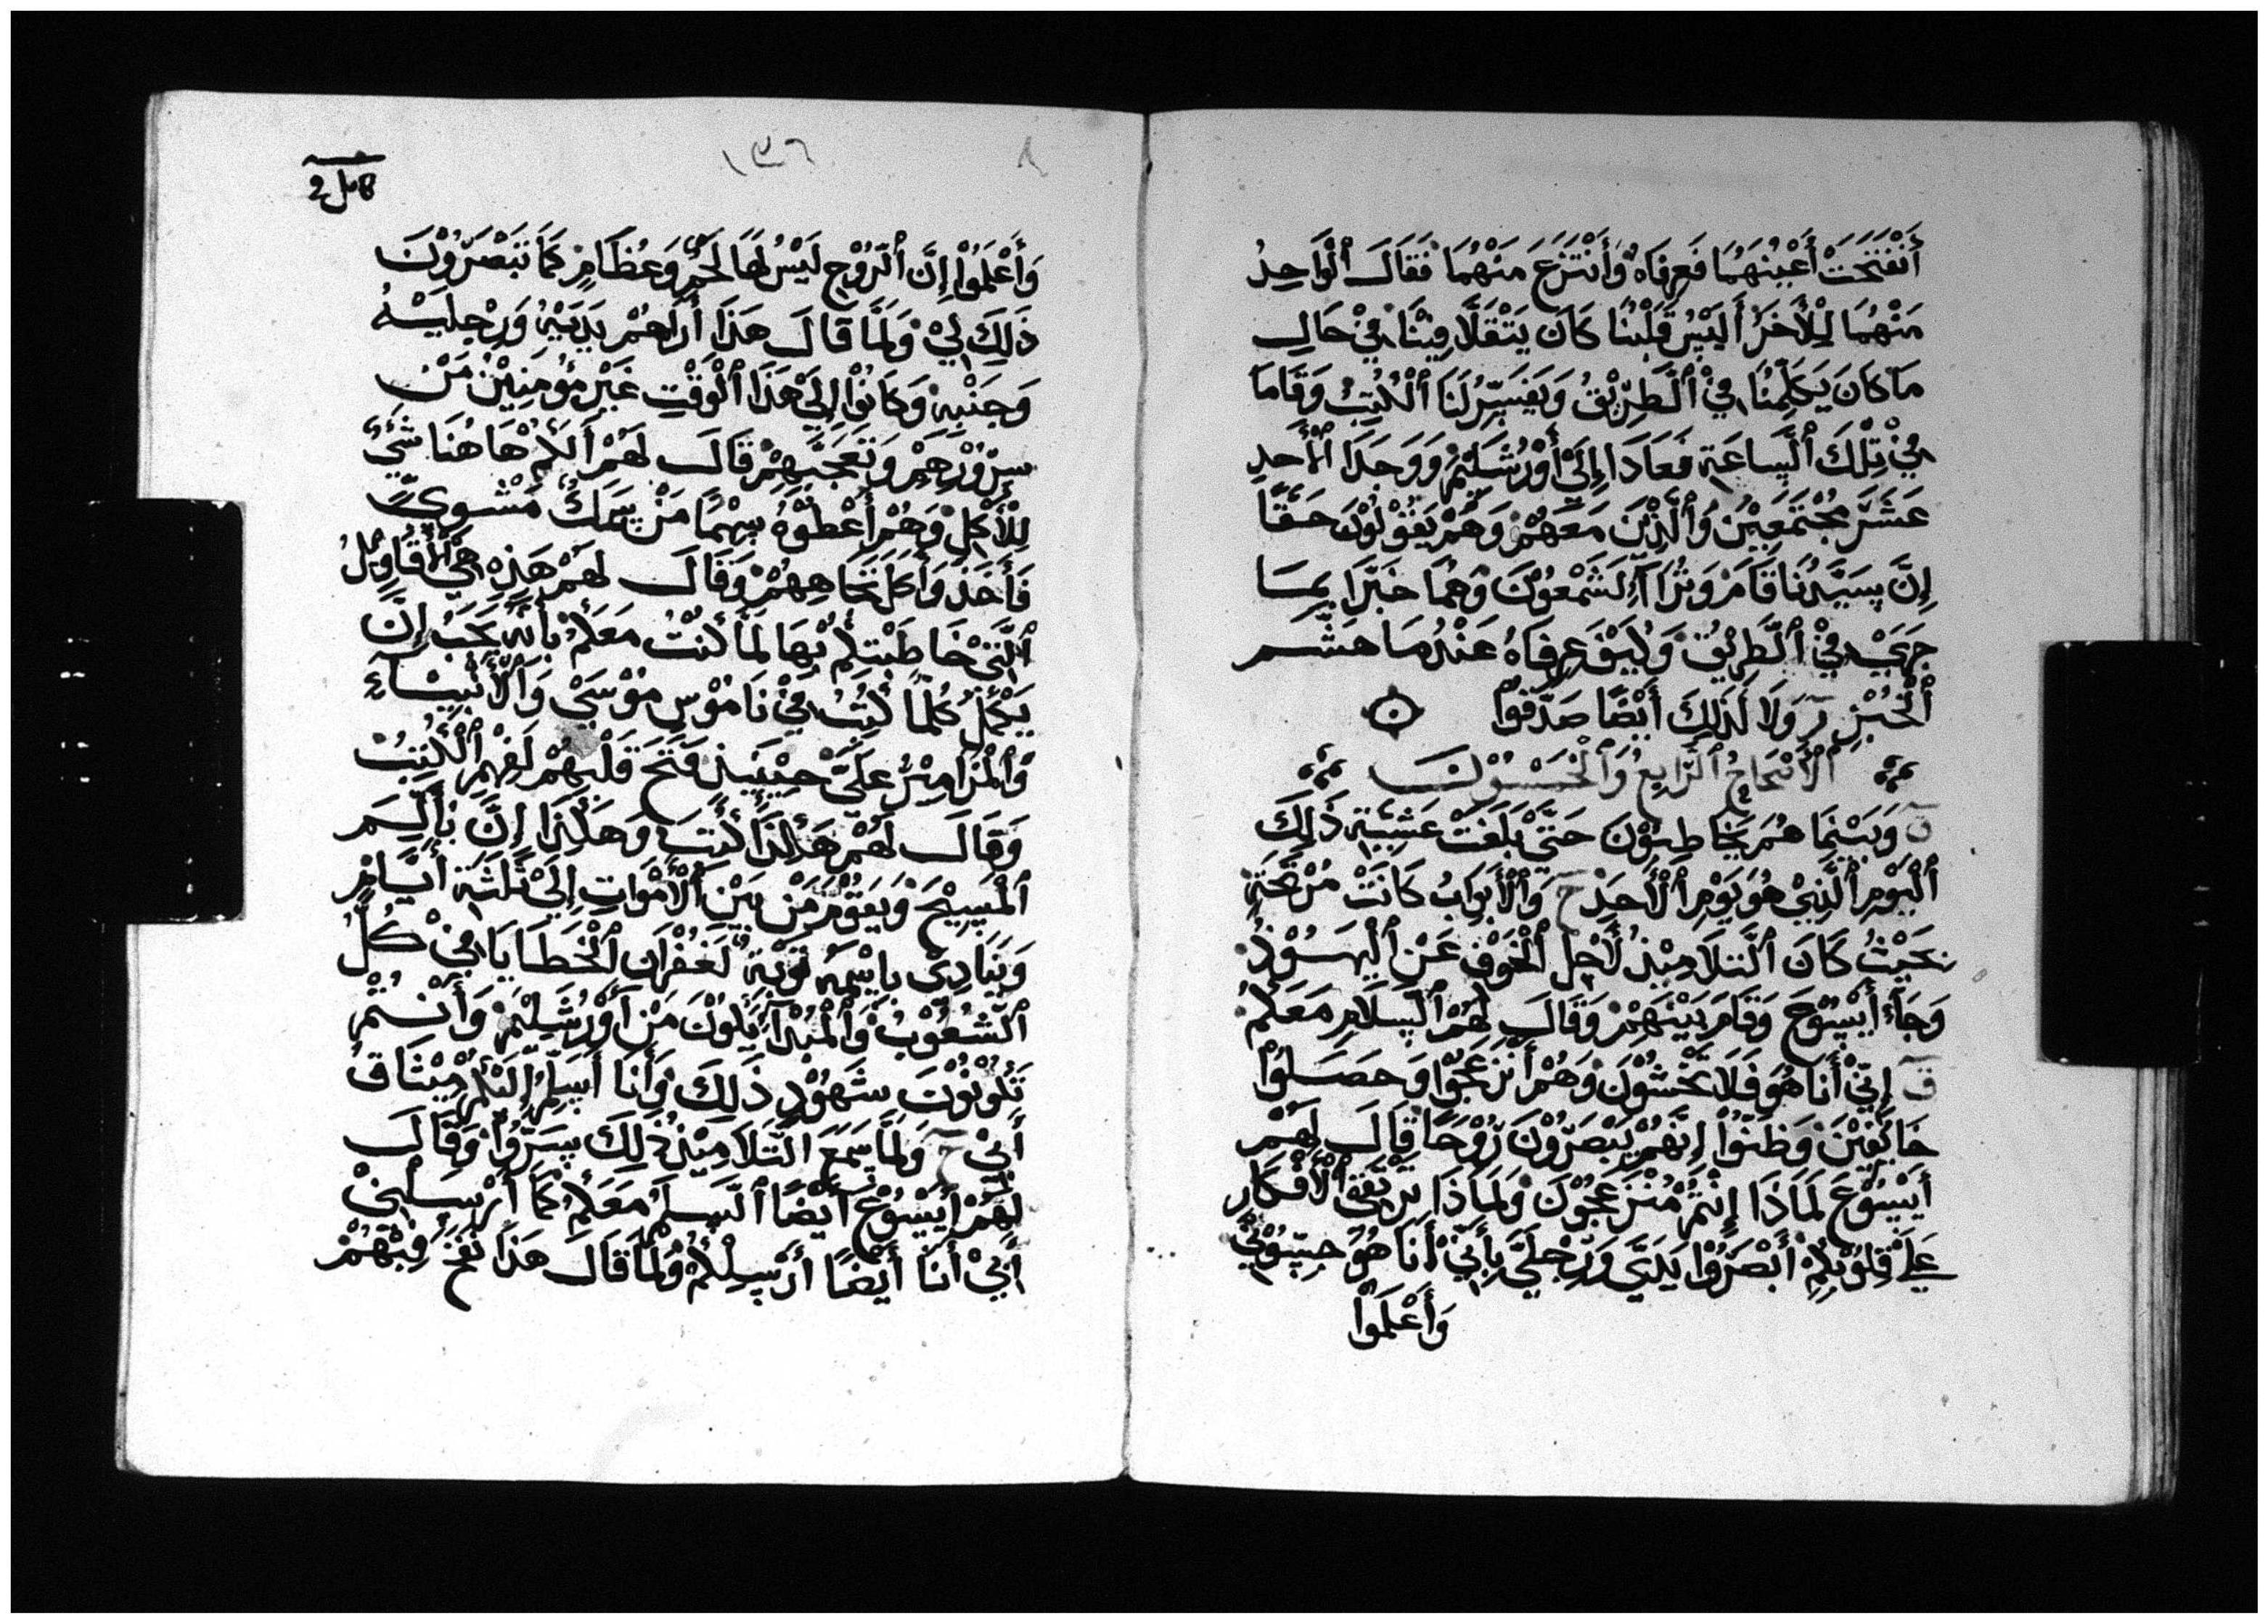 أَنْفَتَحَتْ أَعْيُنَهُمَا فَعَرِفَاهُ وَأَنْتَزَعَ مَنْهُمَا فَقَالَ ٱلْوَاحِدُ
مَنْهُمَا لِلْأَخَرْ أَلَيْسُ قَلْبُنَا كَانَ يَتْقَلَّا فِيْنَا فِيْ حَالِ
مَا كَانَ يَكَلِّمُنَا فِيْ ٱلْطَّرِيْقُ وَيَفَسِّرُ لَنَا ٱلْكُتِبُ وَقَامَا
فِيْ تِلْكَ ٱلْسَّاعَةِ فَعَادَا إِلَىْ أَوْرُشَلِيْمُ وَوَجَدَا ٱلْأَحَدِ
عَشَرَ مُجْتَمَعِيْنَ وَٱلَّذِيْنَ مَعَهُمْ وَهُمْ يَقُوْلُوْنَ حَقًّا
إِنَّ سَيِّدُنَا قَامَ وَتْرَاآ لِشَمْعُوْنَ وَهُمَا خَبَّرَا بِمَا
جَرَىْ فِيْ ٱلْطَّرِيْقِ وَكَيْفَ عَرِفَاهُ عَنْدُمَا هَشَّمَ
ٱلْخُبْزِ وَلَا لَذَلِكَ أَيْضًا صَدَّقُوْا
ٱلْأَصْحَاحُ ٱلْرَّابِعُ وَٱلْخَمْسُوْنَ
وَبَيْنَمَا هُمْ يَخَاطِبُوْنَ حَتَّىْ بَلَغَتْ عَشِيَّةِ ذَلِكَ
ٱلْيَوْمِ ٱلَّذِيْ هُوَ يَوْمِ ٱلْأَحَدْ ح وَٱلْأَبْوَابُ كَانَتْ مُرْتَجَةِ
بَحَيْثُ كَانَ ٱلْتَّلَامِيْذُ لَأَجْلِ ٱلْخَوْفِ عَنْ ٱلْيَهُوْدْ
وَجَاءَ أَيْسُوْعَ وَقَامَ بَيْنَهُمْ وَقَالَ لَهُمْ ٱلْسَّلَامِ مَعَكُمُ
ق إِنِّيْ أَنَا هُوَ فَلَا تَخْشُوْنَ وَهُمْ أَنْزَعَجُوْا وَحَصَلُوْا
خَائِفِيْنَ وَظَنُّوْا إِنَّهُمْ يَبْصَرُوْنَ رُوْحًا قَالَ لَهُمْ
أَيْسُوْعَ لَمَاذَا إِنْتُمْ مُنْزَعِجُوْنَ وَلَمَاذَا تَرْتَقِيْ ٱلْأَفْكَارِ
عَلَىْ قَلُوْبَكُمْ أَبْصَرُوْا يَدَيَّ وَرِجْلَيَّ بِأَنِّيْ أَنَا هُوَ جِسُّوْنِيْ
وَأَعْلَمُوْا
١٣٦
كامل
وَأَعْلَمُوْا إِنَّ ٱلْرُّوْحِ لَيْسُ لَهَا لَحْمٌ وَعُظَامٍ كَمَا تَبْصَرُوْنَ
ذَلِكَ لِيْ وَلَمَّا قَالَ هَذَا أَرَاهُمْ يَدَيْهُ وَرِجْلَيْهُ
وَجَنْبِهْ وَكَانُوْا إِلَىْ هَذَا ٱلْوَقْتِ غَيْرِ مَوْمِنِيْنَ مَنْ
سِرُوْرِهِمْ وَتَعَجَّبِهِمْ قَالَ لَهُمْ أَلَكُمُ هَاهُنَا شَيْءٌ
لِلْأُكْلِ وَهُمْ أَعْطُوْهُ سِهْمًا مَنْ سَمَكٌ مَشْوِيٍّ
فَأَخَذَ وَأَكَلَ تَجَاهِهُمْ وَقَالَ لَهُمْ هَذِهِ هِيَ ٱلْأَقَاوِيْلُ
ٱلَّتِيْ خَاطَبْتِكُمْ بِهَا لَمَّا كُنْتُ مَعَكُمْ بِأَنَّهُ يَجَبْ إِنَّ
يَكْمُلُ كُلْمَا كُتِبُ فِيْ نَامُوْسِ مُوْسَىْ وَٱلْأَنْبِيَاءَ
وَٱلْمَزَامِيْرُ عَلَيَّ حِيْنَيَذٍ فَتَحَ قَلْبَهُمْ لَفَهْمِ ٱلْكُتِبُ
وَقَالَ لَهُمْ هَكَذَا كُتِبَ وَهَكَذَا إِنَّ يَأْلَمَ
ٱلْمَسِيْحَ وَيَقُوْمَ مَنْ بَيْنَ ٱلْأَمْوَاتِ إِلَىْ ثَلَثَةِ أَيَّامٍ
وَيَنَادِىْ بِاسْمَهُ تَوْبَةٌ لَغُفْرَانِ ٱلْخَطَايَا فِيْ كُلِّ
ٱلْشُّعُوْبُ وَٱلْمُبْدَأْ يَكُوْنَ مَنْ أَوْرُشَلِيْمْ وَأَنْتُمْ
تَكُوْنُوْنَ شَهُوْدِ ذَلِكَ وَأَنَا أَسَلِّمْ إِلَيْكُمْ مِيْثَاقُ
أَبِيْ ح وَلَمَّا سَمَعَ ٱلْتَّلَامِيْذُ ذَلِكَ سَرُّوْا وَقَالَ
لَهُمْ أَيْسُوْعْ أَيْضًا ٱلْسَّلَمْ مَعَكُمُ كَمَا أَرْسَلَنِيْ
أَبِيْ أَنَا أَيْضًا أَرْسِلْكُمْ وَلَمَّا قَالَ هَذَا نَفَخَ فِيْهُمْ